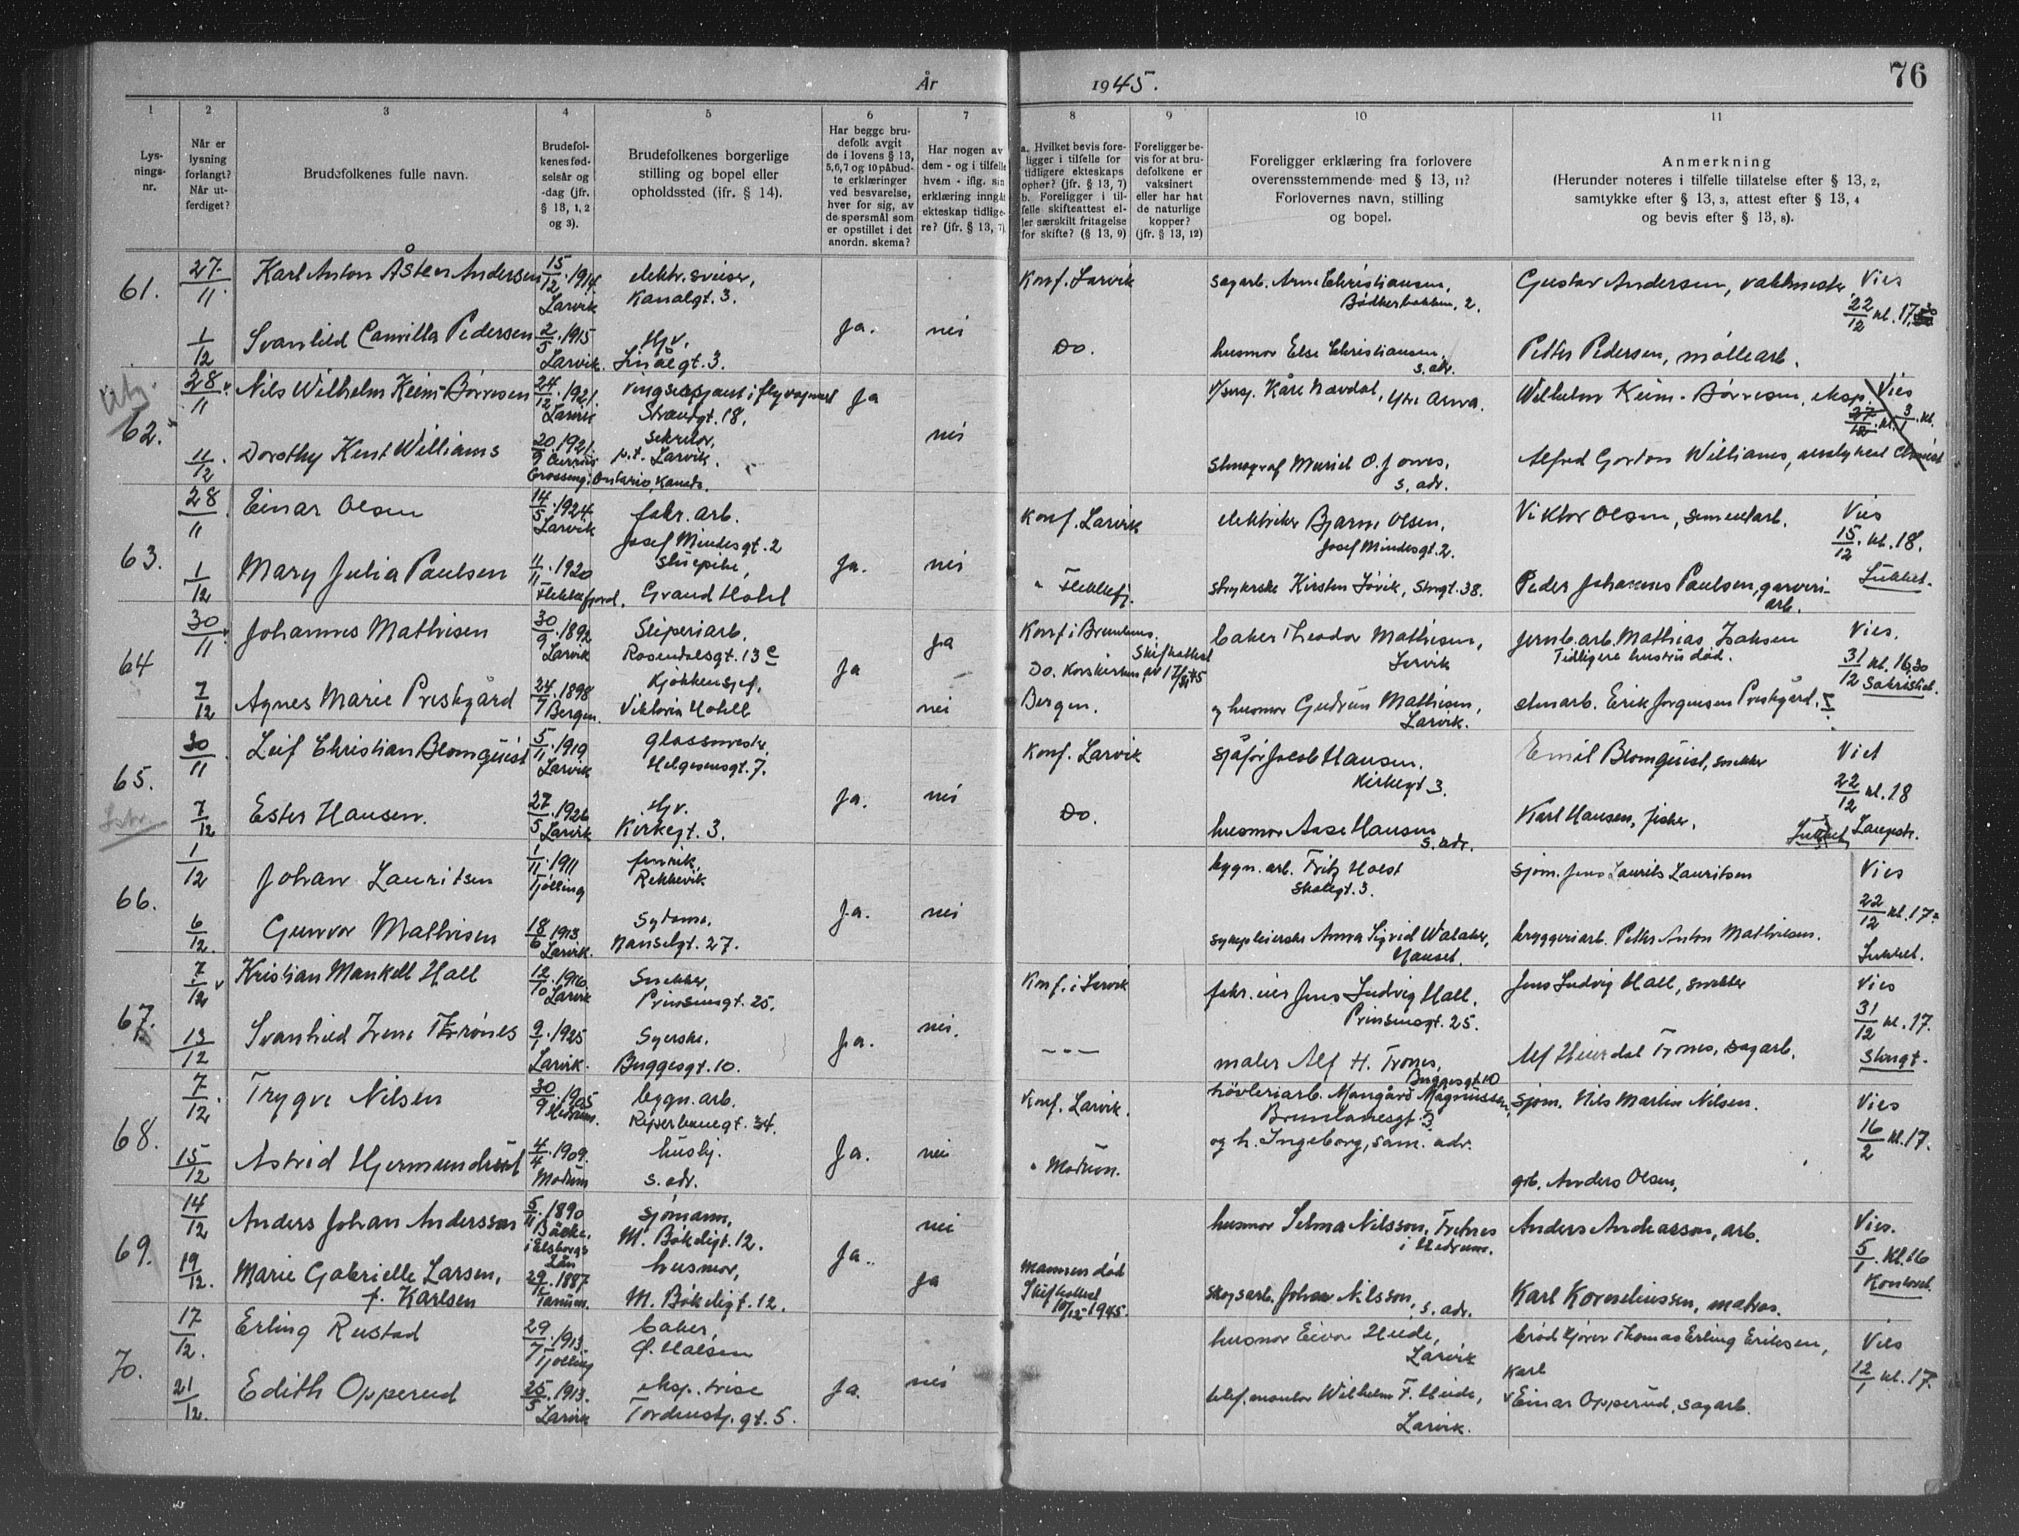 År 1945. 76
1 2 3 4 5 6 7 8 9 10 11
Lys-
nings-
nr.
Når er
lysning
forlangt?
Når ut-
ferdiget?
Brudefolkenes fulle navn.
Brudefol-
kenes fød-
selsår og
-dag (jfr.
§ 13, 1, 2
og 3).
Brudefolkenes borgerlige
stilling og bopel eller
opholdssted (ifr. § 14).
Har begge bru-
defolk avgit
de i lovens § 13,
5, 6, 7 og 10 påbud-
te erklæringer
ved besvarelse,
hver for sig, av
de spørsmål som
er opstillet i det
anordn. skema?
Har nogen av
dem - og i tilfelle
hvem - iflg. sin
erklæring inngåt
ekteskap tidlige-
re? (jfr. § 13, 7).
a. Hvilket bevis fore-
ligger i tilfelle for
tidligere ekteskaps
ophør? (jfr. § 13, 7)
b. Foreligger i til-
felle skifteattest el-
ler særskilt fritagelse
for skifte? (§ 13, 9)
Foreligger be-
vis for at bru-
defolkene er
vaksinert
eller har hat
de naturlige
kopper?
(jfr. § 13, 12)
Foreligger erklæring fra forlovere
overensstemmende med § 13, 11?
Forlovernes navn, stilling
og bopel.
Anmerkning
(Herunder noteres i tilfelle tillatelse efter § 13, 2,
samtykke efter § 13, 3, attest efter § 13, 4
og bevis efter § 13, 8).
61. 27/11 Karl Anton Åsten Andersen 15/12 1914. Larvik elektr. sveiser, Kanalgt. 3. Konf. Larvik sagarb. Arne Christiansen, Bødkerbakken, 2. Gustav Andersen, vaktmester Vies 22/12 kl. 17,
1/12 Svanhild Camilla Pedersen 2/5 1915 Larvik Hjv. Linåegt. 3. Ja. nei Do. husmor Else Christiansen, s. adr. Petter Pedersen, møllearb.
62. 28/11 Nils Wilhelm Keim-Børresen 24/12 1921. Larvik vingsersjant i flyvåpnet Strandgt. 18, Ja Kåre Nævdal, Ytre Arna. Wilhelm Keim-Børresen, eksp. Vies 27/12 kl. 3/1 kl.
11/12 Dorothy Kent Williams 20/9 1921. Crossing, Ontario, Kanada. sekretær, p.t. Larvik. nei Stenograf Muriel O. Jones, s. adr. Alfred Gordon Williams, analytical Chemist
63. 28/11 Einar Olsen 14/5 1924. Larvik fabr. arb. Josef Mindesgt. 2 Konf. Larvik elektriker Bjarne Olsen, Josef Mindesgt. 2. Viktor Olsen, sementarb. Vies 15/12 kl. 18.
1/12 Mary Julia Paulsen 11/11 1920 Flekkefjord. stuepike, Grand Hotel Ja. nei " Flekkefj. strykerske Kirsten Jøvik, Stgt. 38. Peder Johannes Paulsen, garveri-
arb. Lukket.
64 30/11 Johannes Mathisen 30/9 1892 Larvik Sliperiarb. Rosendalsgt. 13 c ja Konf i Brunlanes. Skifteattest av 17/11 45 baker Theodor Mathisen, Larvik jernb.arb. Mathias Isaksen Tidligere hustru død. Vies. 31/12 kl. 16,30 Sakristiet.
7/12 Agnes Marie Prestgård 24/7 1898 Bergen. Kjøkkensjef, Viktoria Hotell Ja nei Do. Korskirken, Bergen. og husmor Gudrun Mathisen, Larvik. stenarb. Erik Jørgensen Prestgård.
65. 30/11 Leif Christian Blomquist 5/11 1919 Larvik glassmester, Helgesensgt. 7. Konf. Larvik sjåfør Jacob Hansen. Kirkegt 3. Emil Blomquist, snekker Viet 22/12 kl. 18
7/12 Ester Hansen. 27/5 1926 Larvik Hjv. Kirkegt. 3. Ja. nei Do. husmor Aase Hansen s. adr. Karl Hansen, fisker. Lukket, Langestr.
66. 1/12 Johan Lauritsen 1/11 1911 Tjølling fenrik, Rekkevik bygn. arb. Fritz Holst Skolegt. 3. sjøm. Jens Laurits Lauritsen Vies 22/12 kl. 17
6/12 Gunvor Mathisen 18/6 1913 Larvik. Sydame, Nanselgt. 27. Ja. nei sykepleierske Anna Sigrid Walaker, Nanset. bryggeriarb. Petter Anton Mathisen. Lukket.
67. 7/12 Kristian Mankell Hall 12/10 1916. Larvik Snekker, Prinsensgt. 25. Konf. i Larvik fabr. eier Jens Ludvig Hall, Prinsensgt. 25. Jens Ludvig Hall, snekker Vies 31/12 kl. 17.
13/12 Svanhild Irene Thrønes 9/1 1925 Larvik. Syerske. Buggesgt. 10. Ja. nei. - " - maler Alf H. Trones, Buggesgt 10 Alf Heierdal Trones, sagarb. Stengt.
68. 7/12 Trygve Nilsen 30/9 1905 Hedrum. bygn. arb. Reperbanegt. 34. Konf. Larvik. høvleriarb. Mangård Magnussen, Brunlanesgt. 3 sjøm. Nils Martin Nilsen. Vies 16/2 kl. 17.
15/12 Astrid Hjermundrud 4/4 1909. Modum husbj. s. adr. Ja. nei " Modum. og h. Ingeborg, sam. adr. grb. Anders Olsen,
69. 14/12 Anders Johan Andersson 5/11 1890 Bäcke, i Elsborgs Län sjømann, M. Bøkeligt. 12. nei husmor Selma Nilsson, Fretnes i Hedrum. Anders Andreasson, arb. Vies. 5/1 Kl. 16
19/12. Marie Gabrielle Larsen, f. Karlsen 29/12 1887 Tanum. husmor, M. Bøkeligt. 12. Ja.. ja Mannen død Skifteattest 10/12 1945. skogsarb. Johan Nilsson, s. adr. Karl Korneliussen, matros. Kontoret.
70. 17/12. Erling Rustad 29/7 1913. Tjølling baker, Ø. Halsen husmor Eivor Heide, Larvik brødkjører Thomas Erling Eriksen, Vies 12/1 kl. 17.
21/12. Edith Opperud 25/3 1913. Larvik eksp. trise Tordenskj. gt. 5. Ja nei telef. montør Wilhelm F. Heide, Larvik. Karl Einar Opperud, sagarb.